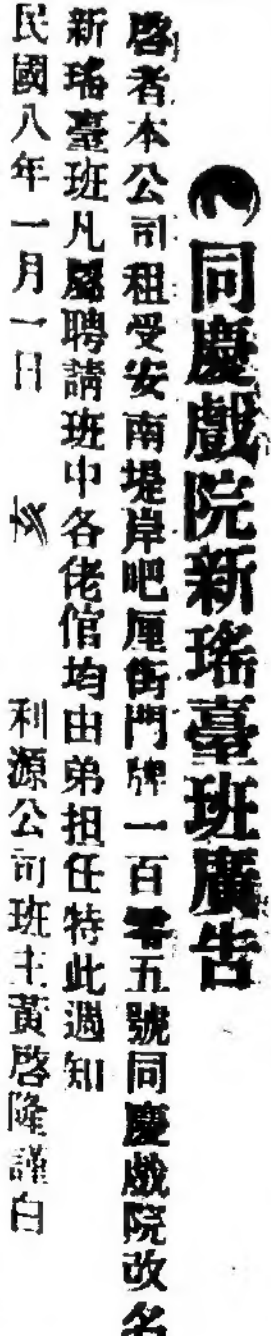 同慶戲院新瑤臺班廣告
啓者本公司租受安南堤岸吧厘街門牌一百零五號同慶戲院改名
新瑤臺班凡屬聘請班中各佬倌均由弟担任特此通知
民國八年一月一日 利源公司班主黃啓隆謹白